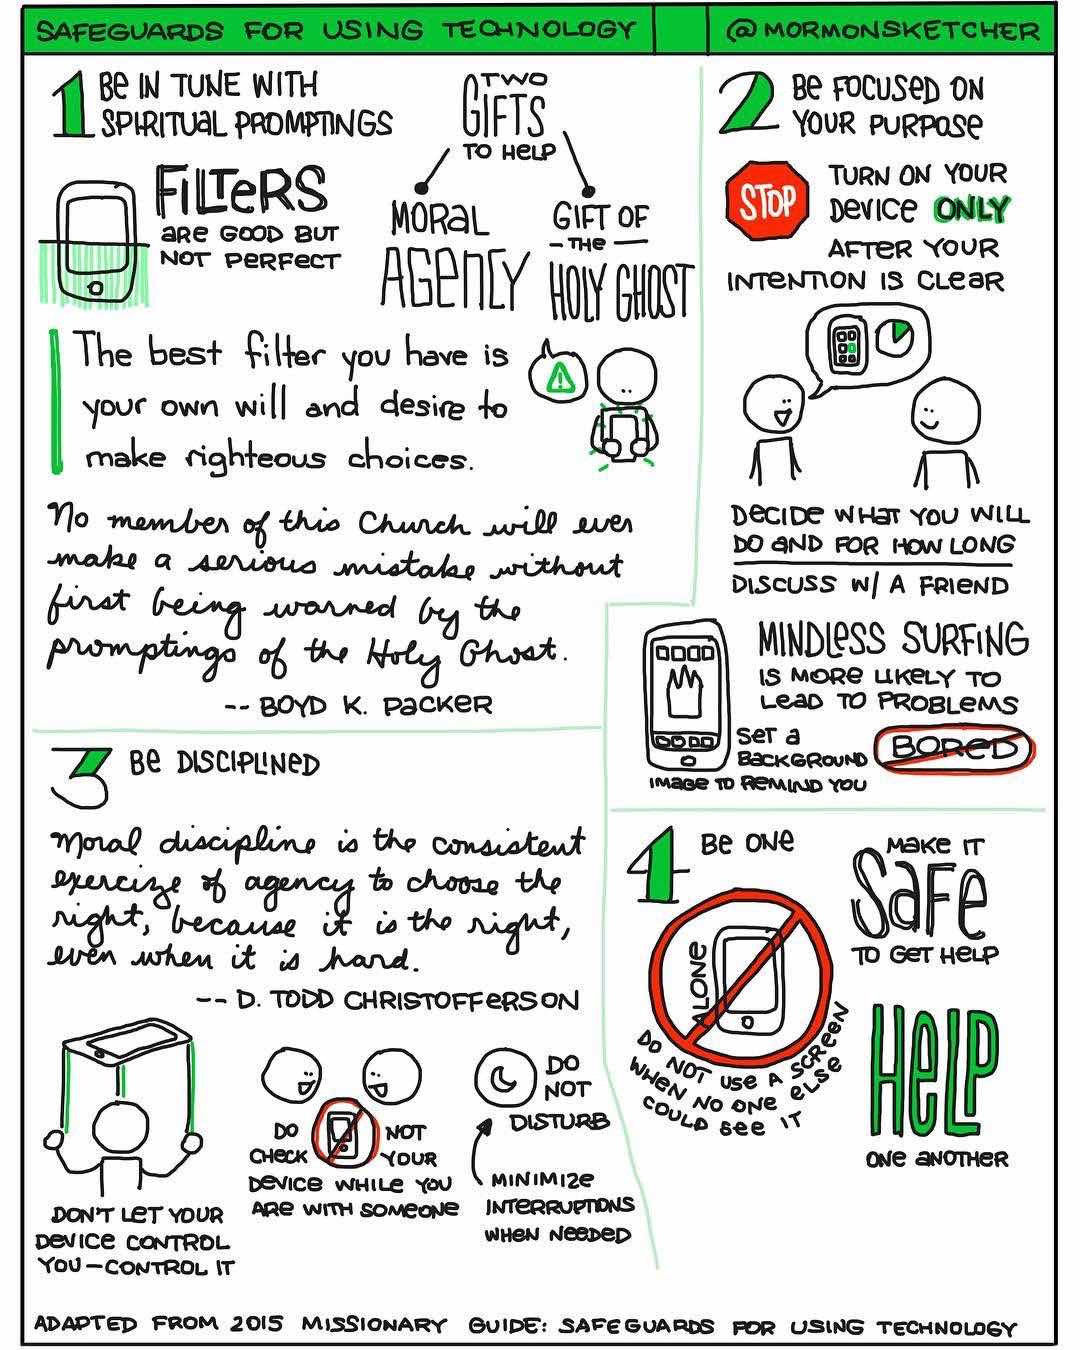 SAFEGUARDS FOR USING TECHNOLOGY
@MORMONSKETCHER
1 BE IN TUNE WITH
SPIRITUAL PROMPTINGS
TWO
GIFTS
TO HELP
FILTERS
ARE GOOD BUT
NOT PERFECT
MORAL
AGENCY
GIFT OF
- THE -
HOLY GHOST
The best filter you have is
your own will and desire to
make righteous choices.
No member of this Church will ever
make a serious mistake without
first being warned by the
promptings of the Holy Ghost.
-- BOYD K. PACKER
2 BE FOCUSED ON
YOUR PURPOSE
STOP
TURN ON YOUR
DEVICE ONLY
AFTER YOUR
INTENTION IS CLEAR
DECIDE WHAT YOU WILL
DO AND FOR HOW LONG
DISCUSS W/ A FRIEND
MINDLESS SURFING
IS MORE LIKELY TO
LEAD TO PROBLEMS
SET A
BACKGROUND
IMAGE TO REMIND YOU
BORED
3 BE DISCIPLINED
Moral discipline is the consistent
exercize of agency to choose the
right, because it is the right,
even when it is hard.
-- D. TODD CHRISTOFFERSON
DON'T LET YOUR
DEVICE CONTROL
YOU-CONTROL IT
DO NOT
CHECK YOUR
DEVICE WHILE YOU
ARE WITH SOMEONE
DO
NOT
DISTURB
MINIMIZE
INTERRUPTIONS
WHEN NEEDED
4 BE ONE
ALONE
DO NOT USE A SCREEN
WHEN NO ONE ELSE
COULD SEE IT
MAKE IT
SAFE
TO GET HELP
HELP
ONE ANOTHER
ADAPTED FROM 2015 MISSIONARY GUIDE: SAFEGUARDS FOR USING TECHNOLOGY